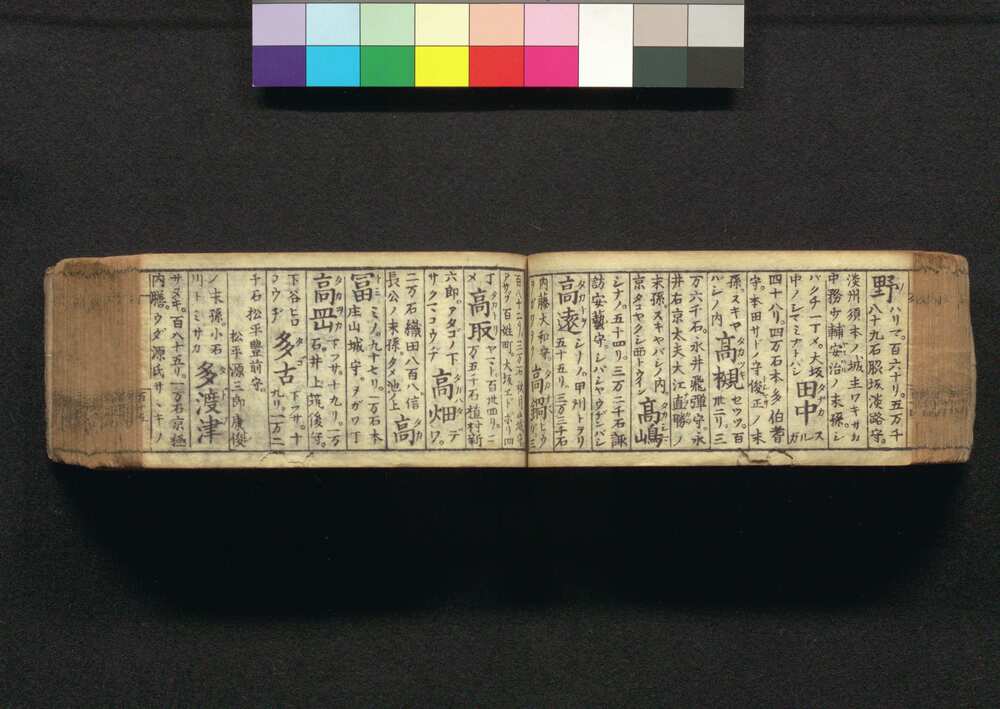 野 ハリマ。百六十リ。五万千
八十九石脇坂淡路守。
淡州須本ノ城主ワキサカ
中務少輔安治ノ末孫。シ
バクチ一丁メ。大坂 田中 ス
中ノシマミナトバシ ルガ
四十八リ。四万石本多伯耆
守。本田サドノ守俊正ノ末
孫。スキヤ 高槻 セツツ。百
バシノ内 丗二リ。三
万六千石。永井飛彈守。永
井右京太夫大江直勝ノ
末孫。スキヤバシノ内。 高嶋
京タコヤクシ西トウイン
シナノ。五十四リ。三万二千石諏
訪安藝守。シバシヤウゲンバシ
高遠 シナノ。甲州トヲリ
五十五リ。三万三千石
内藤大和守。
百八十二リ。三万石
アサブ百姓町。大坂
丁 高取 ヤマト百丗四リ。二
メ 万五千石植村新
六郎。アタゴノ下 高畑 デ
サクマコウジ ワ。
二万石織田八百八。信 高
長公ノ末孫タメ池ノ上
冨 ミノ。九十七リ。一万石本
庄山城守。タガワ丁
高岡 下フサ。十九リ。一万
石井上筑後守。
下谷ヒロ 多古 下フサ。十
コウヂ 九リ。一万二
千石松平豊前守。
松平源三郎康俊
ノ末孫小石 多渡津
川トミサカ
サヌキ。百八十五リ。一万石京極
内膳。ウダ源氏サヽキノ